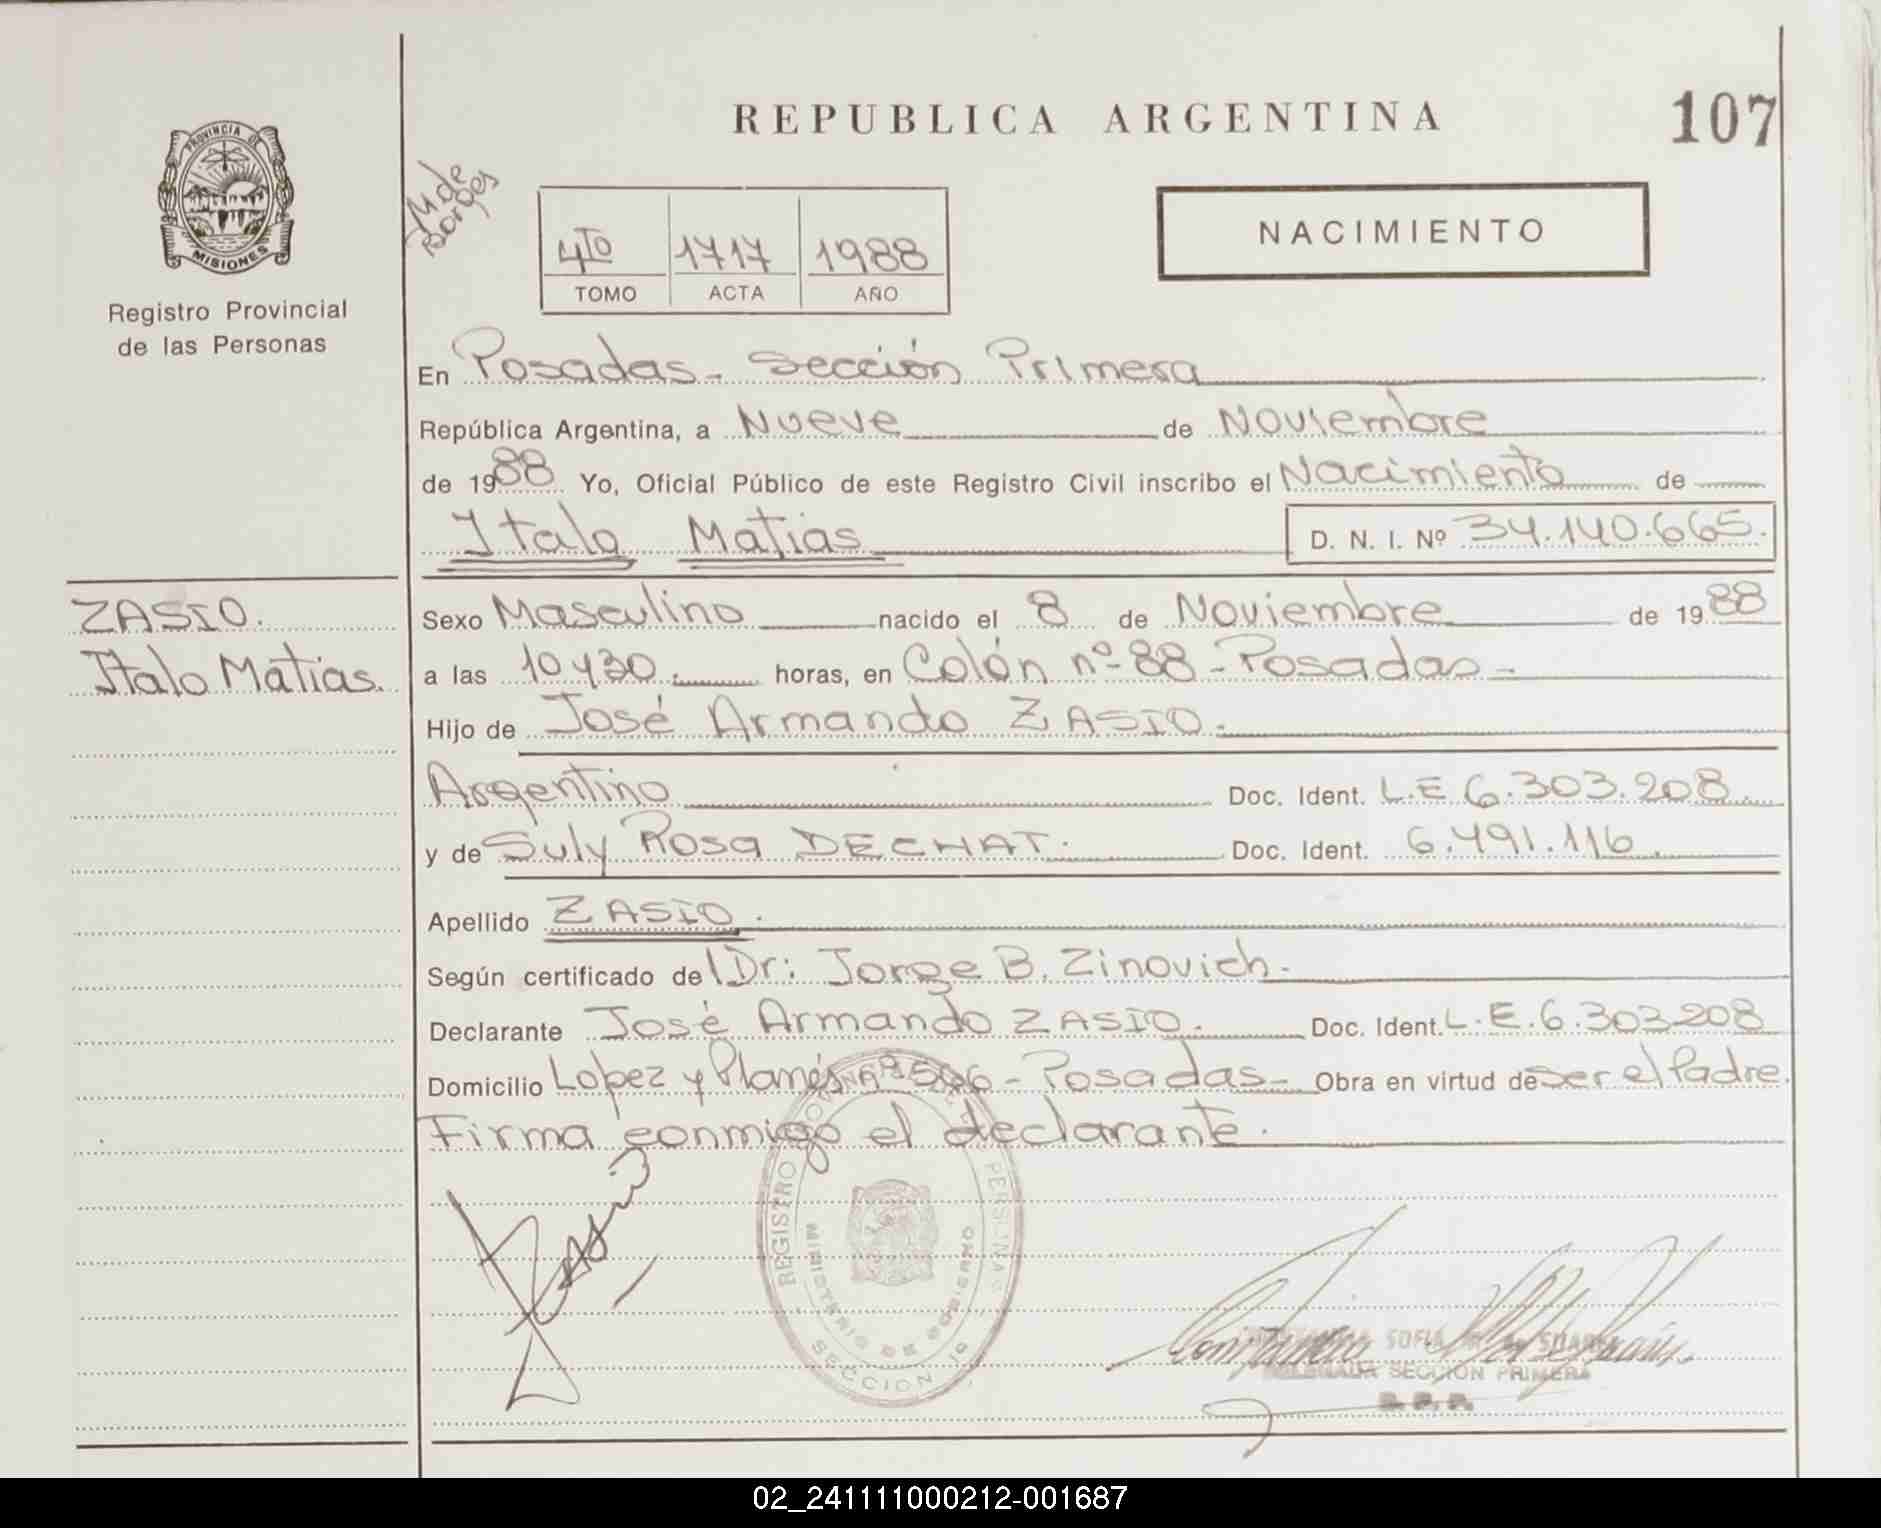 REPUBLICA ARGENTINA
107
PROVINCIA DE
MISIONES
Registro Provincial
de las Personas
M de
Borges
4TO 1717 1988
TOMO ACTA AÑO
NACIMIENTO
En Posadas - Sección Primera
República Argentina, a Nueve de Noviembre
de 1988 Yo, Oficial Público de este Registro Civil inscribo el Nacimiento de
Italo Matias D. N. I. Nº 34.140.665.
ZASIO.
Italo Matias.
Sexo Masculino nacido el 8 de Noviembre de 1988
a las 10 y 30. horas, en Colón nº 88 - Posadas -
Hijo de José Armando ZASIO.
Argentino Doc. Ident. L.E 6.303.208.
y de Suly Rosa DECHAT. Doc. Ident. 6.491.116.
Apellido ZASIO.
Según certificado del Dr: Jorge B. Zinovich.
Declarante José Armando ZASIO. Doc. Ident. L.E. 6.303208
Domicilio Lopez y Planés - Posadas - Obra en virtud de ser el Padre.
Firma conmigo el declarante.
REGISTRO PERSONAS
MINISTERIO DE GOBIERNO
SECCION 1º
SOFIA SUAREZ
DELEGADA SECCION PRIMERA
R. P. P.
02_241111000212-001687